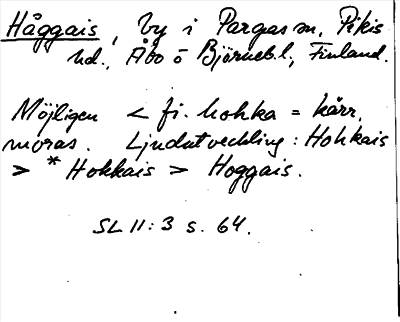 Håggais, by i Pargas sn, Pikis
hd., Åbo o Björneb.l., Finland.
Möjligen < fi. hohka = kärr,
moras. Ljudutveckling: Hohkais
> *Hokkais > Hoggais.
SL 11:3 s. 64.